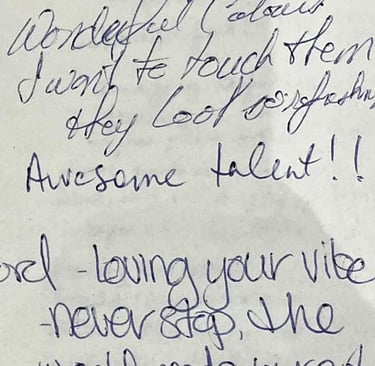 Wonderful Colours
I want to touch them
they look so refreshin
Awesome talent!!
ord - loving your vibe
- never stop, the